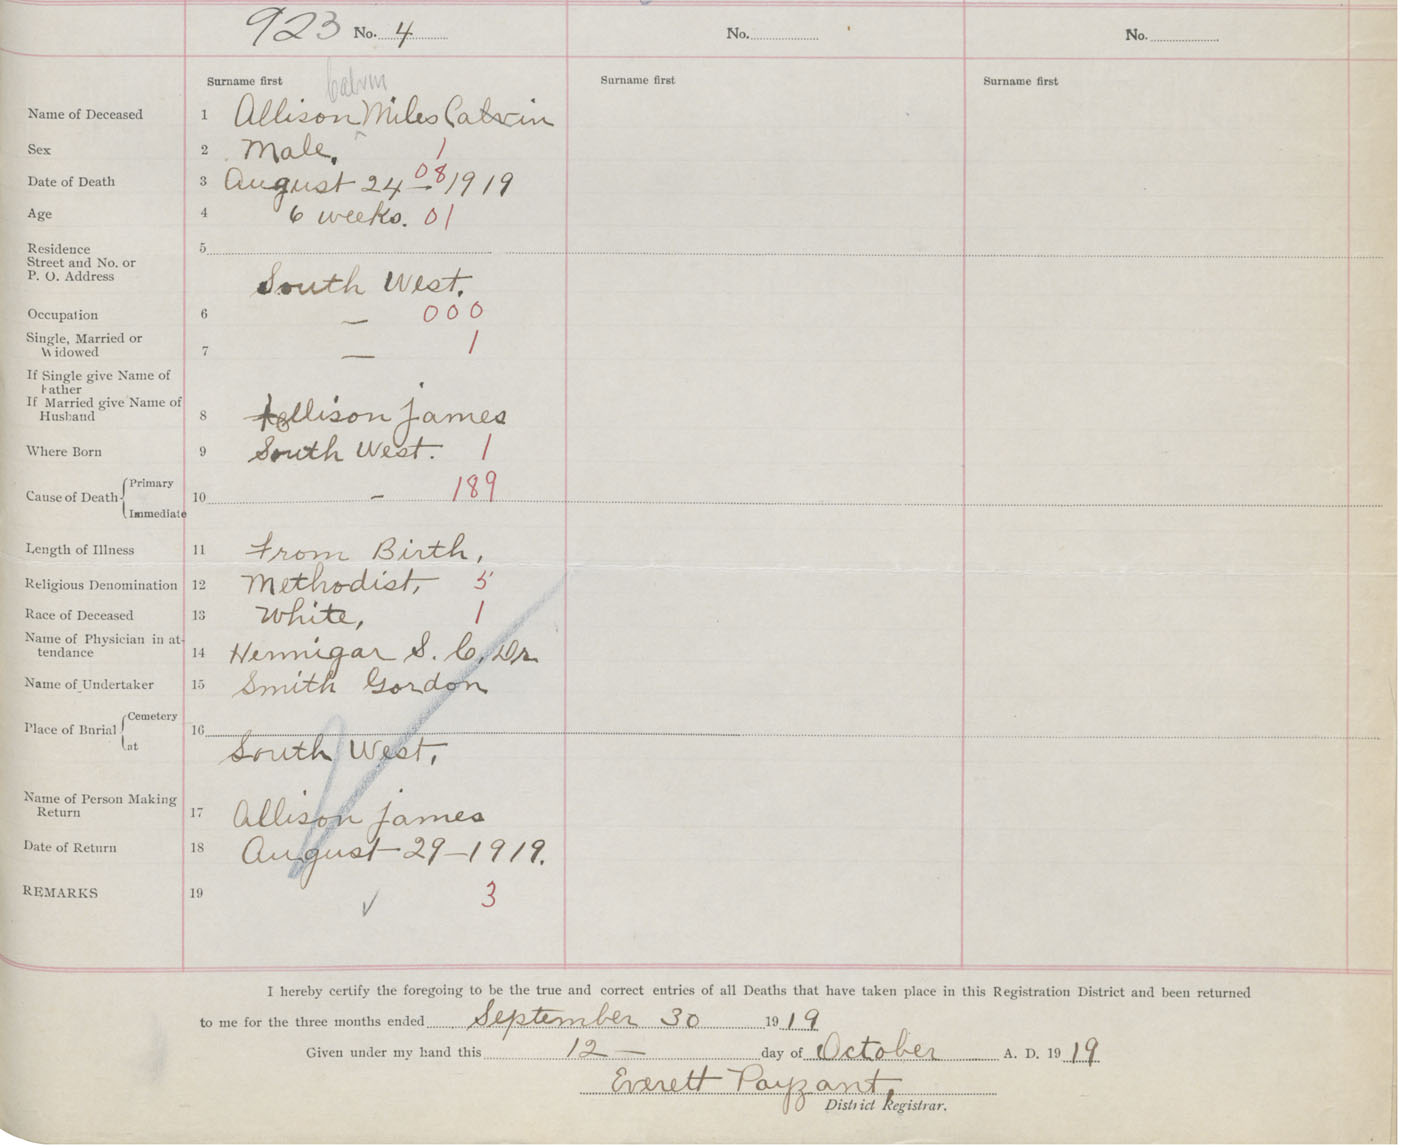 923 No. 4 No. No.
Surname first Calvin Surname first Surname first
Name of Deceased 1 Allison Miles Calvin
Sex 2 Male. 1
Date of Death 3 August 24 - 08 1919
Age 4 6 weeks. 01
Residence 5
Street and No. or
P. O. Address South West.
Occupation 6 — 000
Single, Married or
Widowed 7 — 1
If Single give Name of
Father
If Married give Name of
Husband 8 Allison James
Where Born 9 South West. 1
Cause of Death { Primary
10 - 189
Immediate
Length of Illness 11 From Birth,
Religious Denomination 12 Methodist, 5
Race of Deceased 13 White, 1
Name of Physician in at-
tendance 14 Hennigar S. C. Dr.
Name of Undertaker 15 Smith Gordon
Place of Burial { Cemetery
16
at South West,
Name of Person Making
Return 17 Allison James
Date of Return 18 August 29-1919.
REMARKS 19 ✓ 3
I hereby certify the foregoing to be the true and correct entries of all Deaths that have taken place in this Registration District and been returned
to me for the three months ended September 30 1919
Given under my hand this 12 — day of October A. D. 1919
Everett Payzant,
District Registrar.